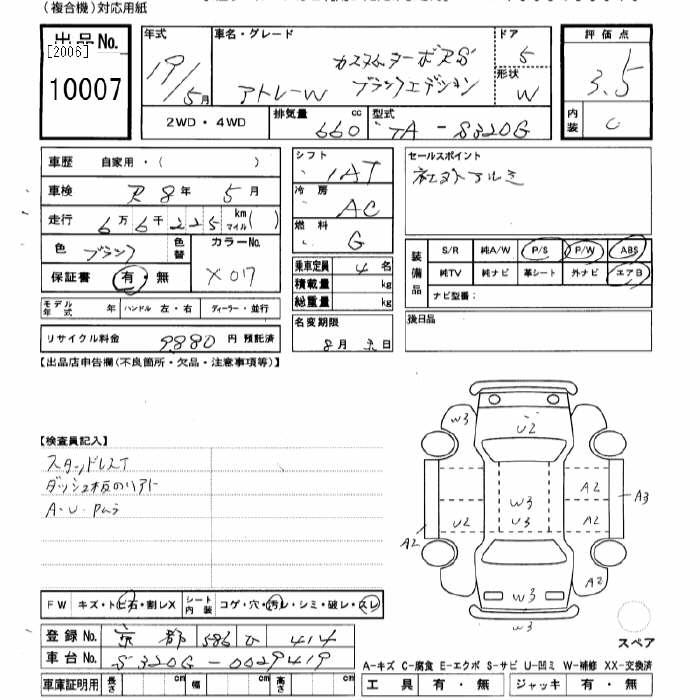 (複合機)対応用紙
出品No.
[2006]
10007
年式
19/5月
車名・グレード
カスタムターボRS
アトレーW ブラックエディション
ドア
5
形状
W
評価点
3.5
内装
C
2WD・4WD
排気量
660 cc
型式
TA-S320G
車歴 自家用・( )
車検 R8年5月
走行 6万6千225 km マイル( )
色
ブラック
色替
カラーNo.
X07
保証書 有・無
シフト
IAT
冷房
AC
燃料
G
乗車定員 4名
積載量 kg
総重量 kg
名変期限
8月末日
セールスポイント
社外アルミ
装備品
S/R 純A/W P/S P/W ABS
純TV 純ナビ 革シート 外ナビ エアB
ナビ型番:
後日品
モデル年式 年 ハンドル 左・右 ディーラー・並行
リサイクル料金 9880円 預託済
【出品店申告欄(不良箇所・欠品・注意事項等)】
【検査員記入】
スタッドレスT
A・U
W3
U2
W3
U3
A2
A2
A3
U2
A2
A2
W3
W3
スペア
FW キズ・トビ石・割レX シート内装 コゲ・穴・汚レ・シミ・破レ・スレ
登録No. 京都 586 414
車台No. S320G-0029419
車庫証明用 長さ cm 幅 cm 高さ cm
A-キズ C-腐食 E-エクボ S-サビ U-凹ミ W-補修 XX-交換済
工具 有・無 ジャッキ 有・無